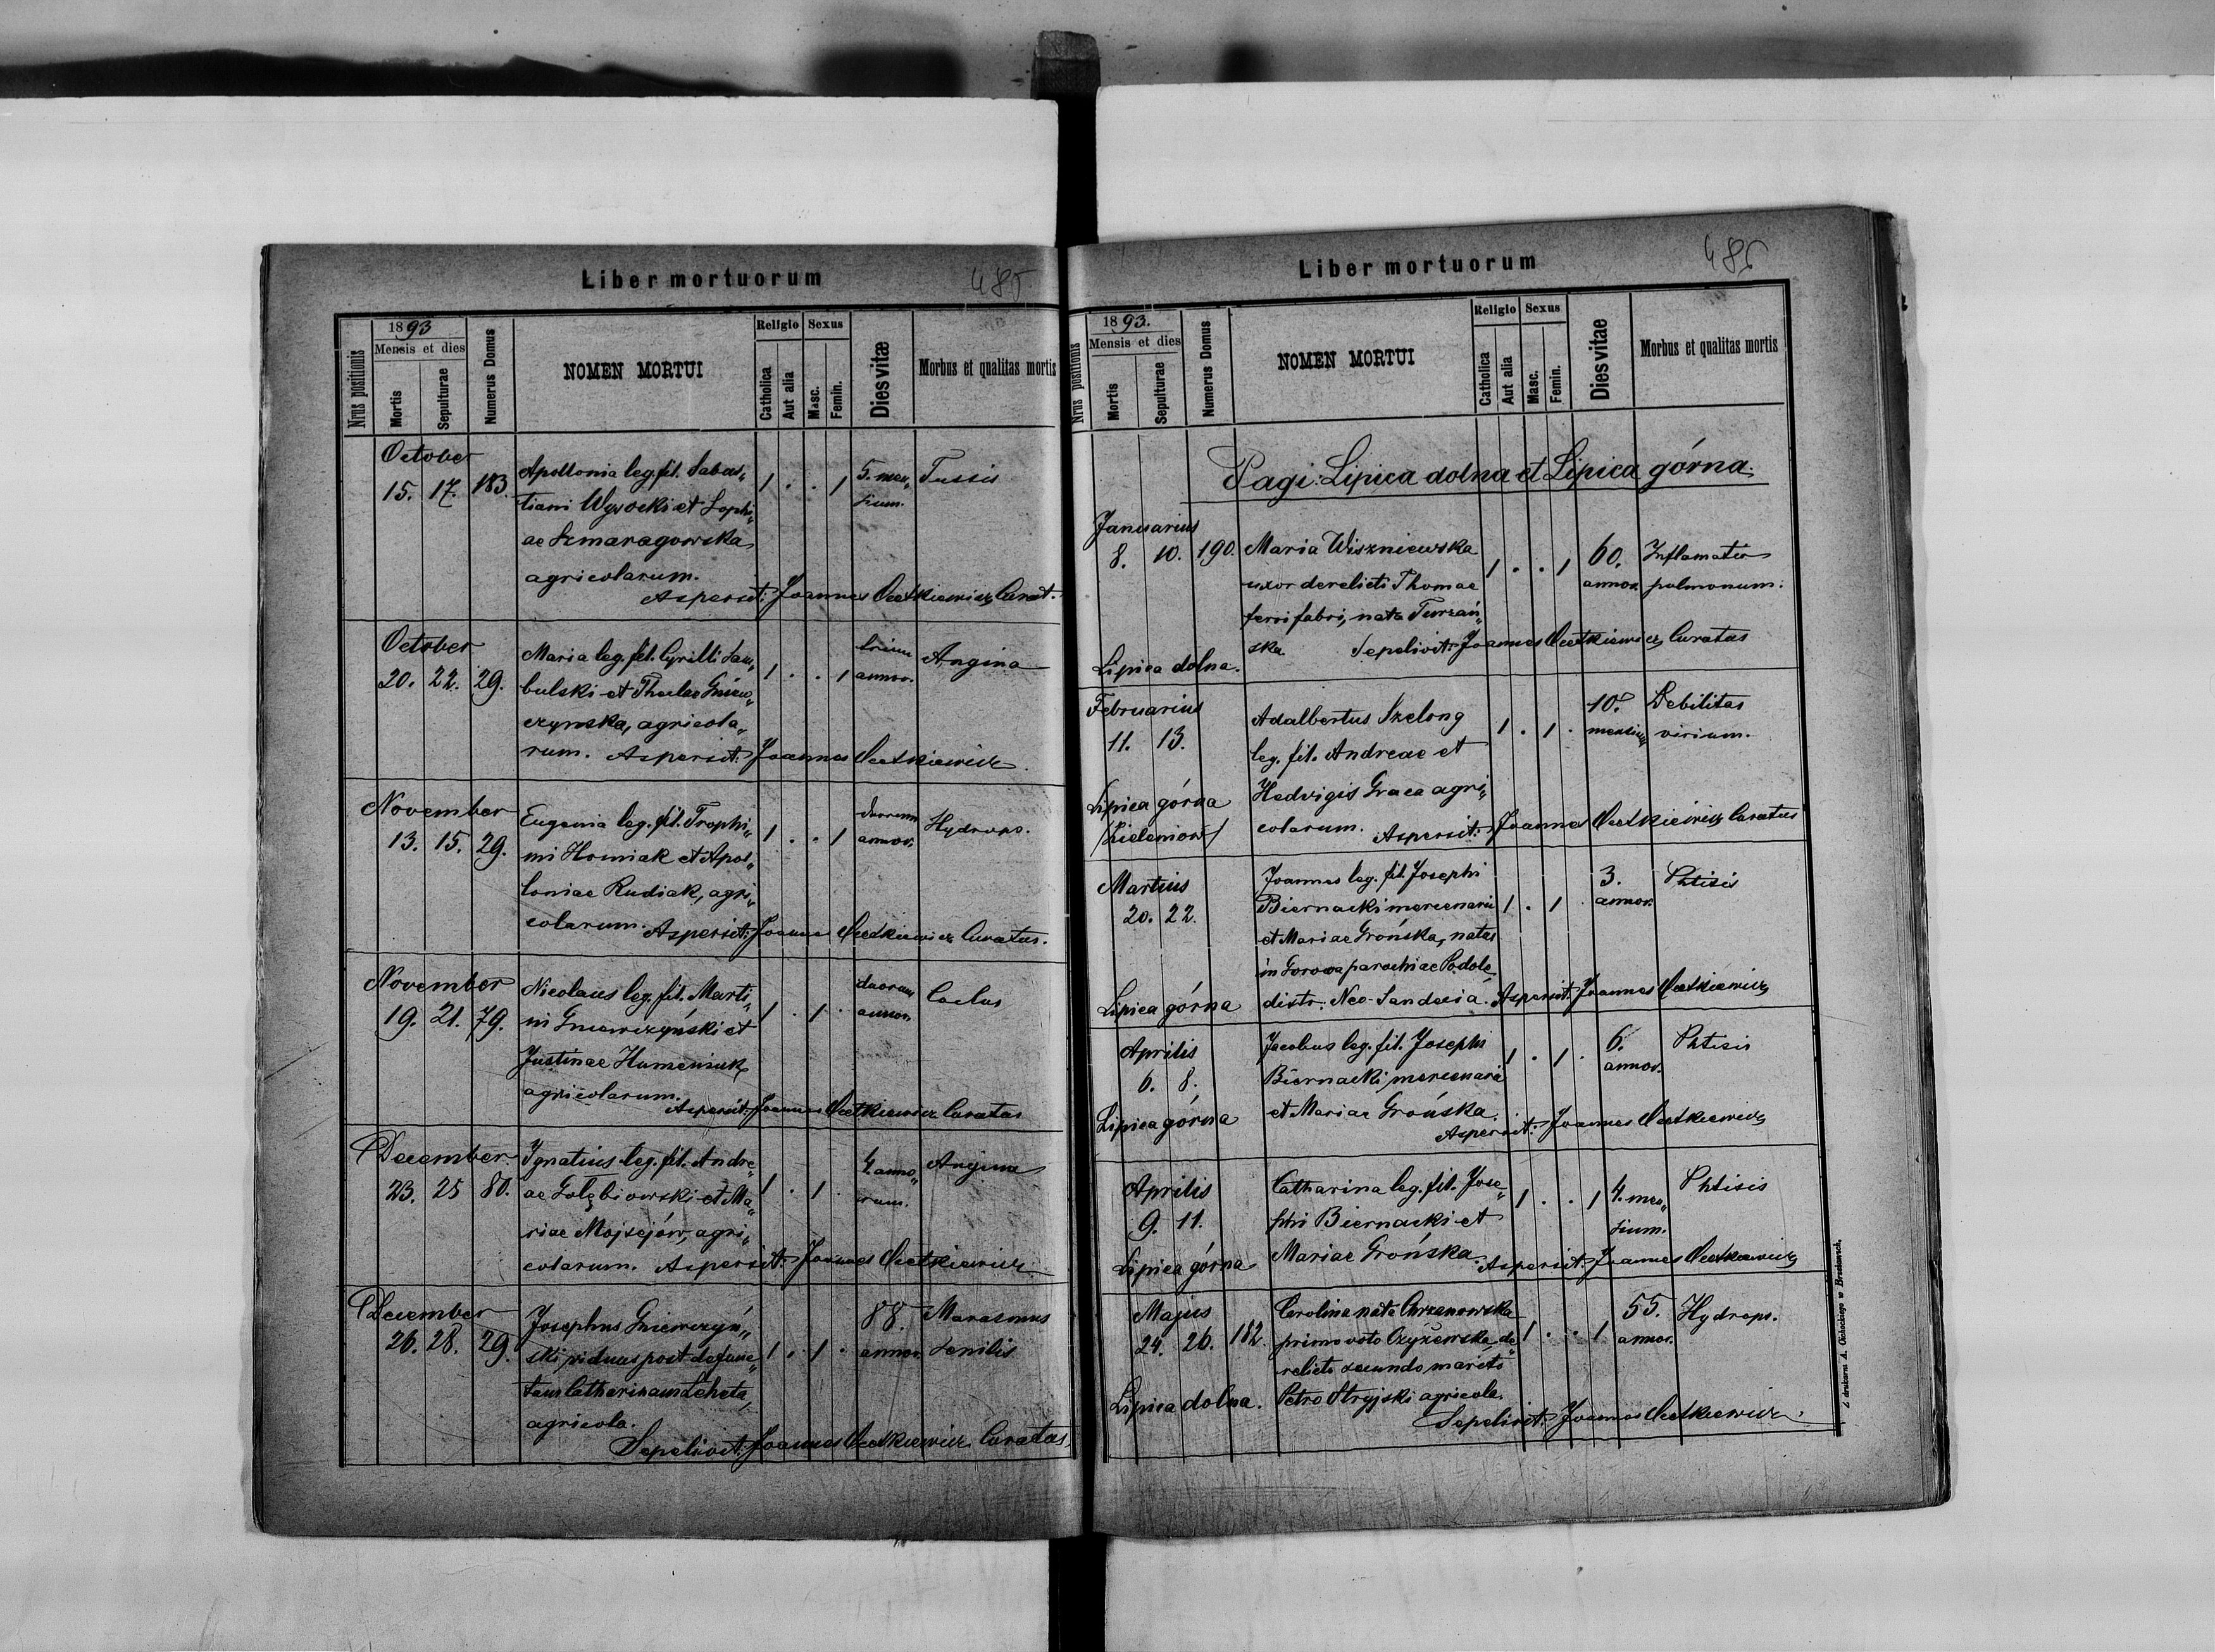 Liber mortuorum
485
Nrus positionis
1893
Mensis et dies
Mortis
Sepulturae
Numerus Domus
NOMEN MORTUI
Religio
Catholica
Aut alia
Sexus
Masc.
Femin.
Dies vitæ
Morbus et qualitas mortis
October
15. 17. 183. Apollonia leg. fil. Sabas„ 1 . . 1 5. men„ Tussis
tiani Wysocki et Sophi„ sium.
ae Szmaragowska
agricolarum.
Aspersit: Joannes Curat.
October
20. 22. 29. Maria leg. fil. Cyrilli Sam„ 1 . . 1 trium Angina
bulski et Theclae Gniew„ annor.
czynska, agricola„
rum. Aspersit: Joannes
November
13. 15. 29. Eugenia leg. fil. Trophi„ 1 . . 1 duorum Hydrops.
mi Homiak et Apol„ annor.
loniae Rudiak, agri„
colarum. Aspersit: Joannes Curatus.
November
19. 21. 79. Nicolaus leg. fil. Marti„ 1 . 1 . duorum
ni Gniewczyński et annor.
Justinae Humeniuk
agricolarum.
Aspersit: Joannes Curatus
December
23. 25 80. Ignatius leg. fil. Andre„ 1 . 1 . 4 anno„ Angina
ae Golębiowski et Ma„ rum.
riae Mojsejów, agri„
colarum. Aspersit: Joannes
December
26. 28. 29. Josephus Gniewczyń„ 1 . 1 . 88. Marasmus
ski, viduus post defunc„ annor. senilis
tam Catharinam
agricola.
Sepelivit: Joannes Curatus
Liber mortuorum
486
Nrus positionis
1893.
Mensis et dies
Mortis
Sepulturae
Numerus Domus
NOMEN MORTUI
Religio
Catholica
Aut alia
Sexus
Masc.
Femin.
Dies vitae
Morbus et qualitas mortis
Pagi: Lipica dolna et Lipica górna.
Januarius
8. 10. 190. Maria Wiszniewska 1 . . 1 60. Inflamatio
uxor derelicti Thomae annor. pulmonum.
ferri fabri, nata Turzań„
ska. Sepelivit: Joannes Curatus
Lipica dolna.
Februarius
11. 13. Adalbertus Szelong 1 . 1 . 10. Debilitas
leg. fil. Andreae et mensium virium.
Lipica górna Hedvigis Graca agri„
/Zieleniow/ colarum. Aspersit: Joannes Curatus
Martius
20. 22. Joannes leg. fil. Josephi 1 . 1 . 3. Phtisis
Biernacki mercenarii annor.
et Mariae Grońska, natus
in parochiae Podole
Lipica górna distr. Neo-Sandecia. Aspersit: Joannes
Aprilis
6. 8. Jacobus leg. fil. Josephi 1 . 1 . 6. Phtisis
Biernacki, mercenarii annor.
Lipica górna et Mariae Grońska.
Aspersit: Joannes
Aprilis
9. 11. Catharina leg. fil. Jose„ 1 . . 1 4. men„ Phtisis
phi Biernacki et sium.
Lipica górna Mariae Grońska. Aspersit: Joannes
Majus
24. 26. 182. Carolina nata Chrzanowska 1 . . 1 55. Hydrops.
primo voto Czyżewska, de„ annor.
relicto secundo marito
Lipica dolna. Petro Stryjski agricola.
Sepelivit: Joannes
Z drukarni A. Okockiego w Brzeżanach.